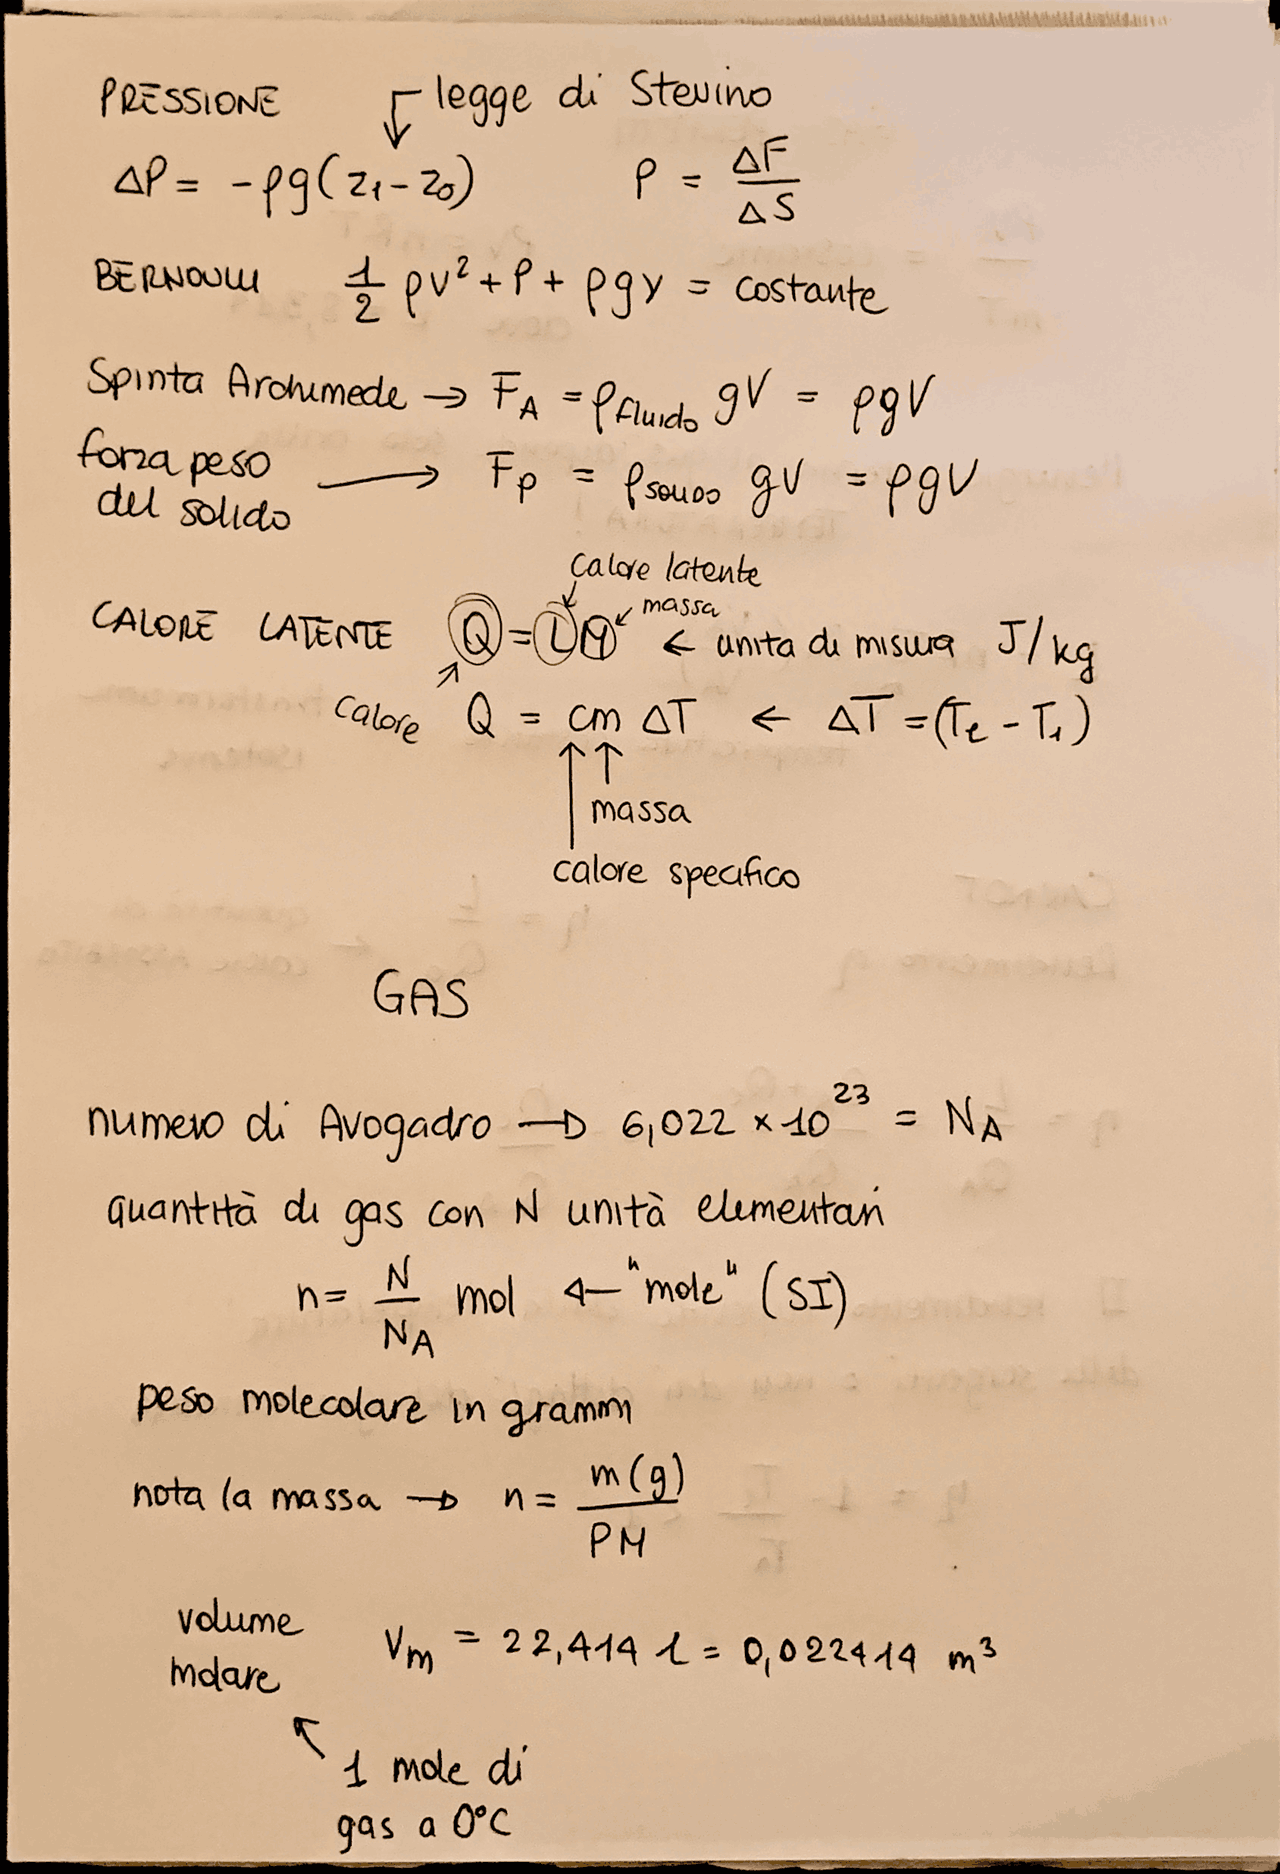 PRESSIONE legge di Stevino
ΔP = -ρg(z₁-z₀) P = ΔF/ΔS
BERNOULLI 1/2 ρv² + P + ρgy = costante
Spinta Archimede → F_A = ρfluido gV = ρgV
forza peso
del solido → F_P = ρsolido gV = ρgV
calore latente
massa
CALORE LATENTE Q = LM ← unita di misura J/kg
calore Q = cm ΔT ← ΔT = (T₂ - T₁)
massa
calore specifico
GAS
numero di Avogadro → 6,022 × 10²³ = N_A
quantità di gas con N unità elementari
n = N/N_A mol ← "mole" (SI)
peso molecolare in grammi
nota la massa → n = m(g)/PM
volume
molare
V_m = 22,414 l = 0,022414 m³
1 mole di
gas a 0°C